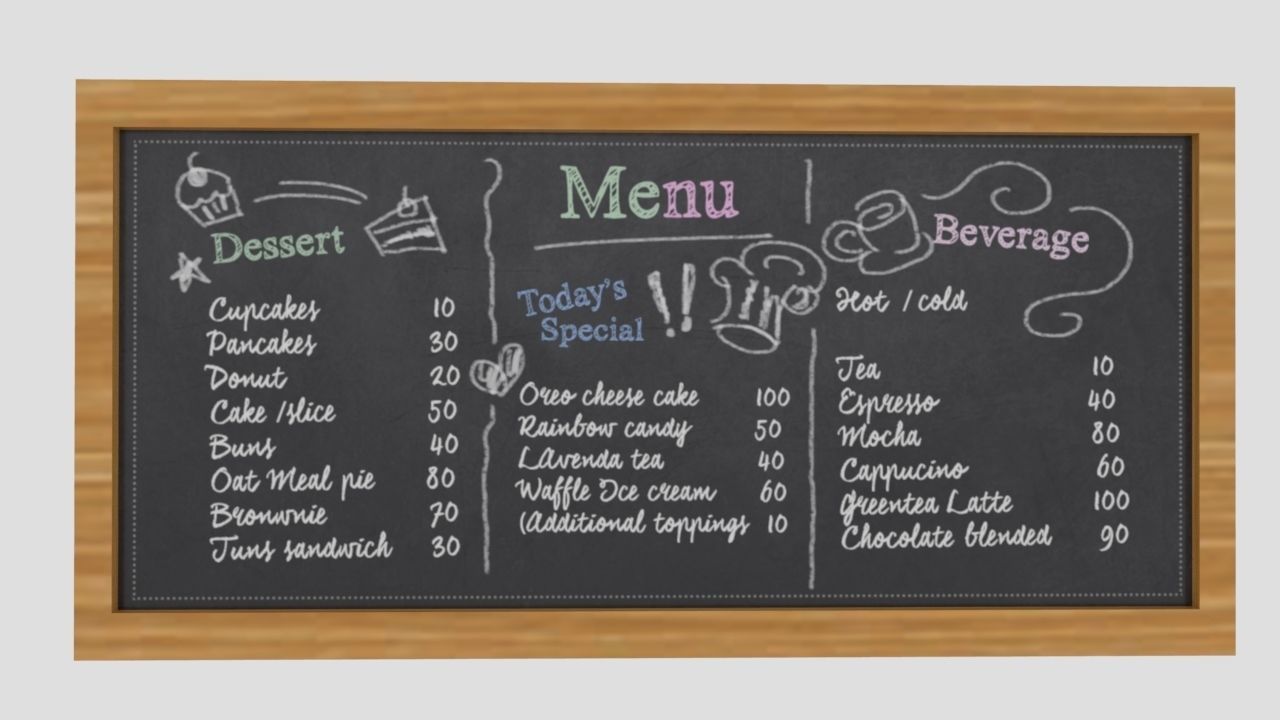 Menu
Dessert
Cupcakes 10
Pancakes 30
Donut 20
Cake /slice 50
Buns 40
Oat Meal pie 80
Bronwnie 70
Tuns sandwich 30
Today's
Special !!
Oreo cheese cake 100
Rainbow candy 50
LAvenda tea 40
Waffle Ice cream 60
(Additional toppings 10
Beverage
Hot / cold
Tea 10
Espresso 40
Mocha 80
Cappucino 60
Greentea Latte 100
Chocolate blended 90